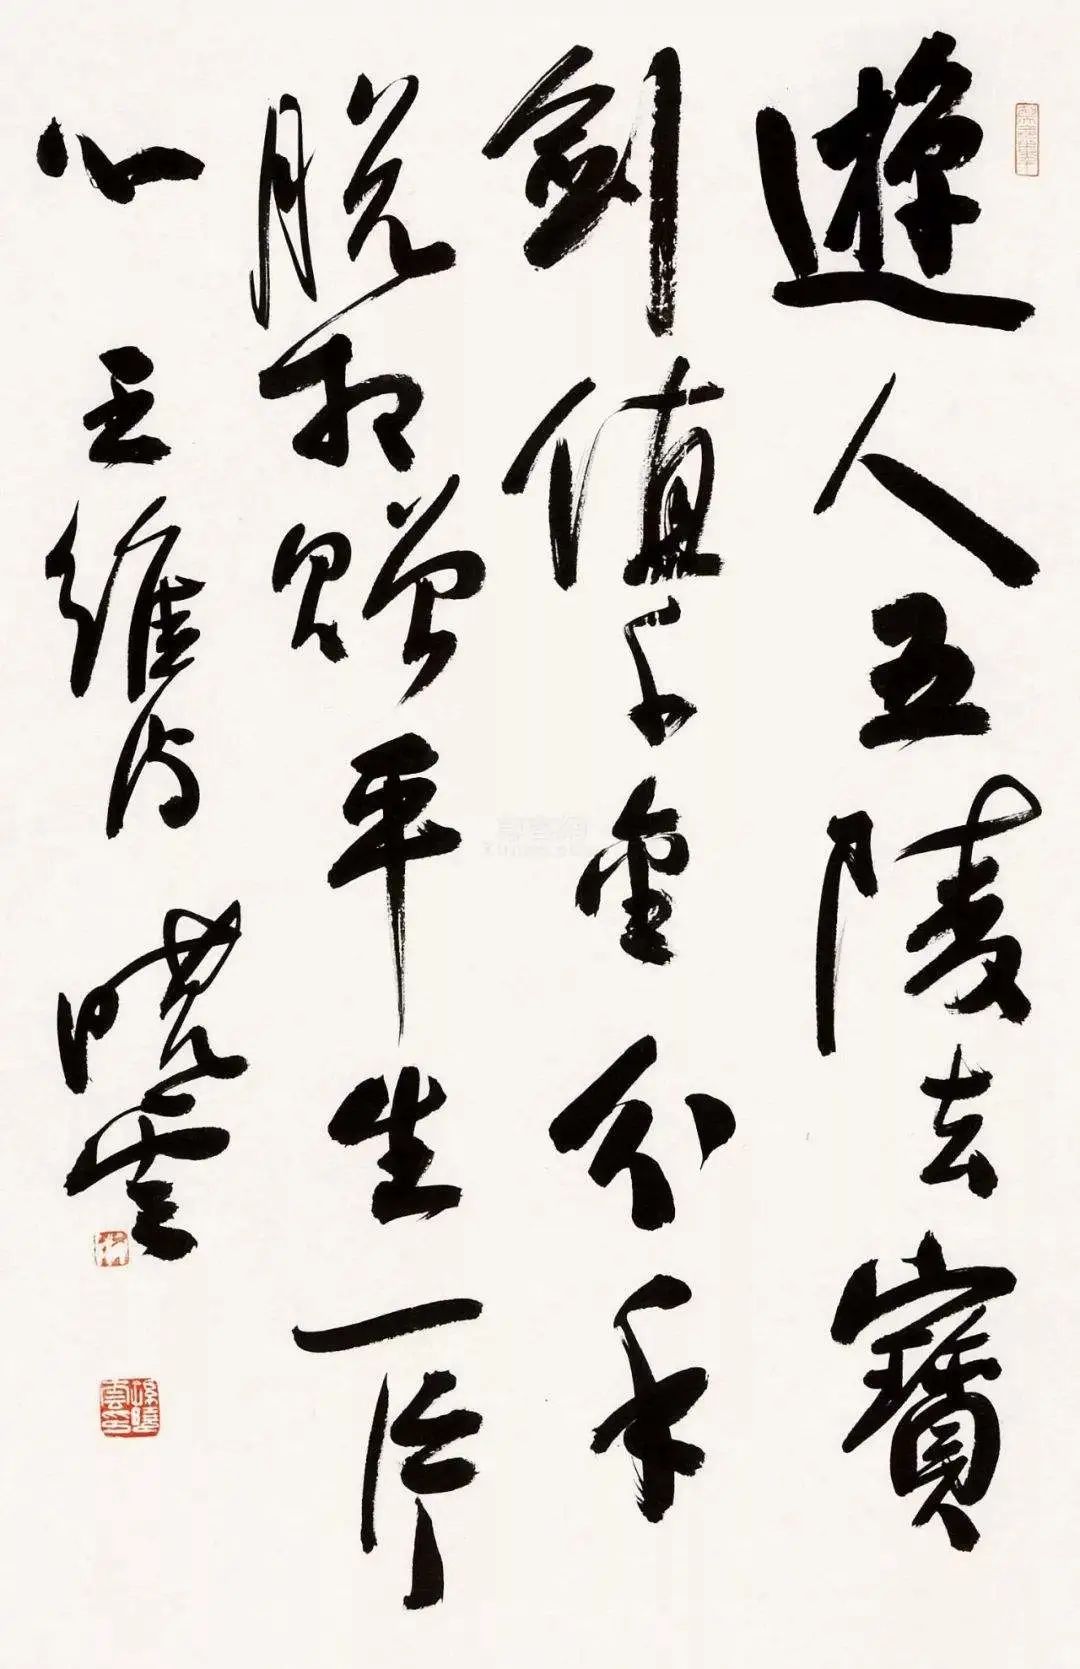 遊人五陵去寶
劍值千金分手
脫相贈平生一片
心 王維句 曉雲